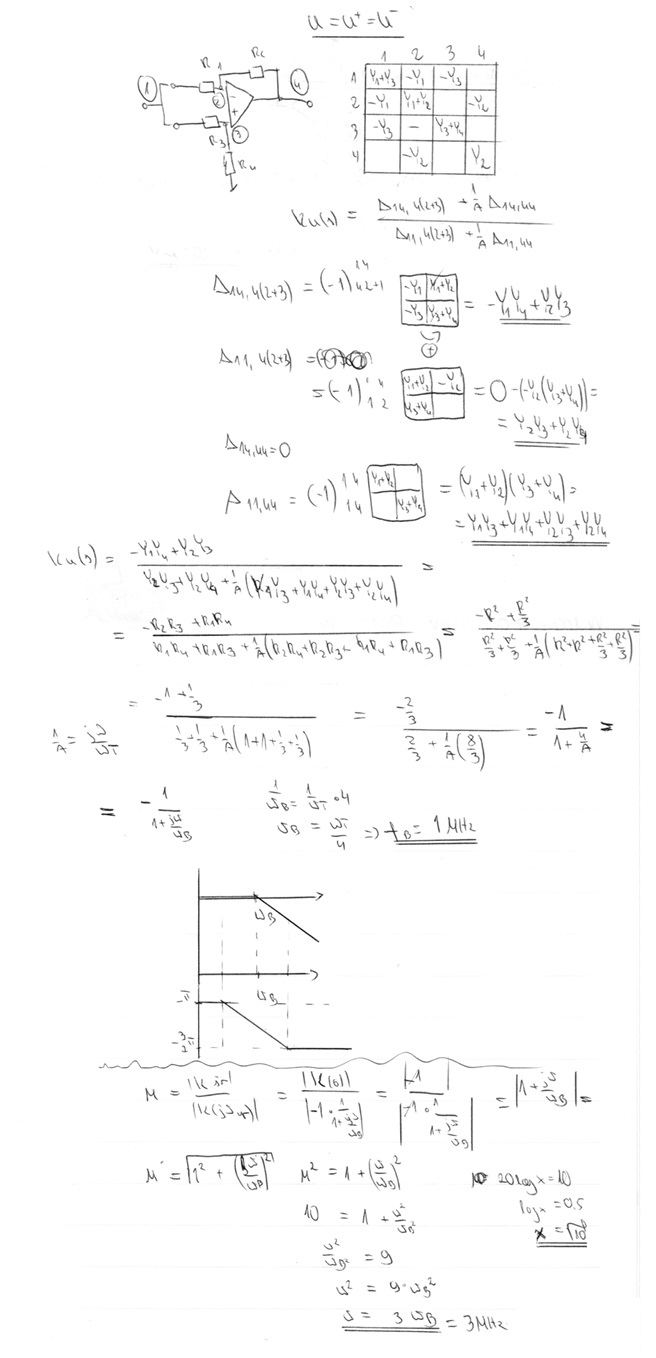 u = u⁺ = u⁻
R 1 R2
1 2 3 4
1 Y1+Y3 -Y1 -Y3
① ② - + ③ ④
2 -Y1 Y1+Y2 -Y2
R3
3 -Y3 - Y3+Y4
R4
4 -Y2 Y2
Ku(s) = (Δ14,4(2+3) + 1/A Δ14,44) / (Δ11,4(2+3) + 1/A Δ11,44)
Δ14,4(2+3) = (-1) 14 42+1 | -Y1 Y1+Y2 | -Y3 Y3+Y4 | = -Y1Y4 + Y2Y3
⊕
Δ11,4(2+3) =
= (-1) 14 12 | Y1+Y2 -Y2 | Y3+Y4 | = 0-(-Y2(Y3+Y4)) =
= Y2Y3 + Y2Y4
Δ14,44 = 0
Δ11,44 = (-1) 14 14 | Y1+Y2 | Y3+Y4 | = (Y1+Y2)(Y3+Y4) =
= Y1Y3 + Y1Y4 + Y2Y3 + Y2Y4
Ku(s) = (-Y1Y4 + Y2Y3) / (Y2Y3 + Y2Y4 + 1/A (Y1Y3 + Y1Y4 + Y2Y3 + Y2Y4)) =
= (-R2R3 + R1R4) / (R1R4 + R1R3 + 1/A (R2R4 + R2R3 + R1R4 + R1R3)) = (-R² + R²/3) / (R²/3 + R²/3 + 1/A (R² + R² + R²/3 + R²/3)) =
1/A = jω/ωT = (-1 + 1/3) / (1/3 + 1/3 + 1/A (1+1+1/3+1/3)) = (-2/3) / (2/3 + 1/A (8/3)) = -1 / (1 + 4/A) =
= - 1 / (1 + jω/ωB) 1/ωB = 1/ωT · 4
ωB = ωT/4 => fB = 1 MHz
ωB
ωB
-π
-3/2 π
M = |K ir| / |K(jωr)| = |K(0)| / |-1 · 1/(1+jω/ωB)| = |-1| / |-1 · 1/(1+jω/ωB)| = |1 + jω/ωB| =
M = √(1² + (ω/ωB)²) M² = 1 + (ω/ωB)² 20 log x = 10
log x = 0.5
10 = 1 + ω²/ωB²
x = √10
ω²/ωB² = 9
ω² = 9·ωB²
ω = 3 ωB = 3MHz